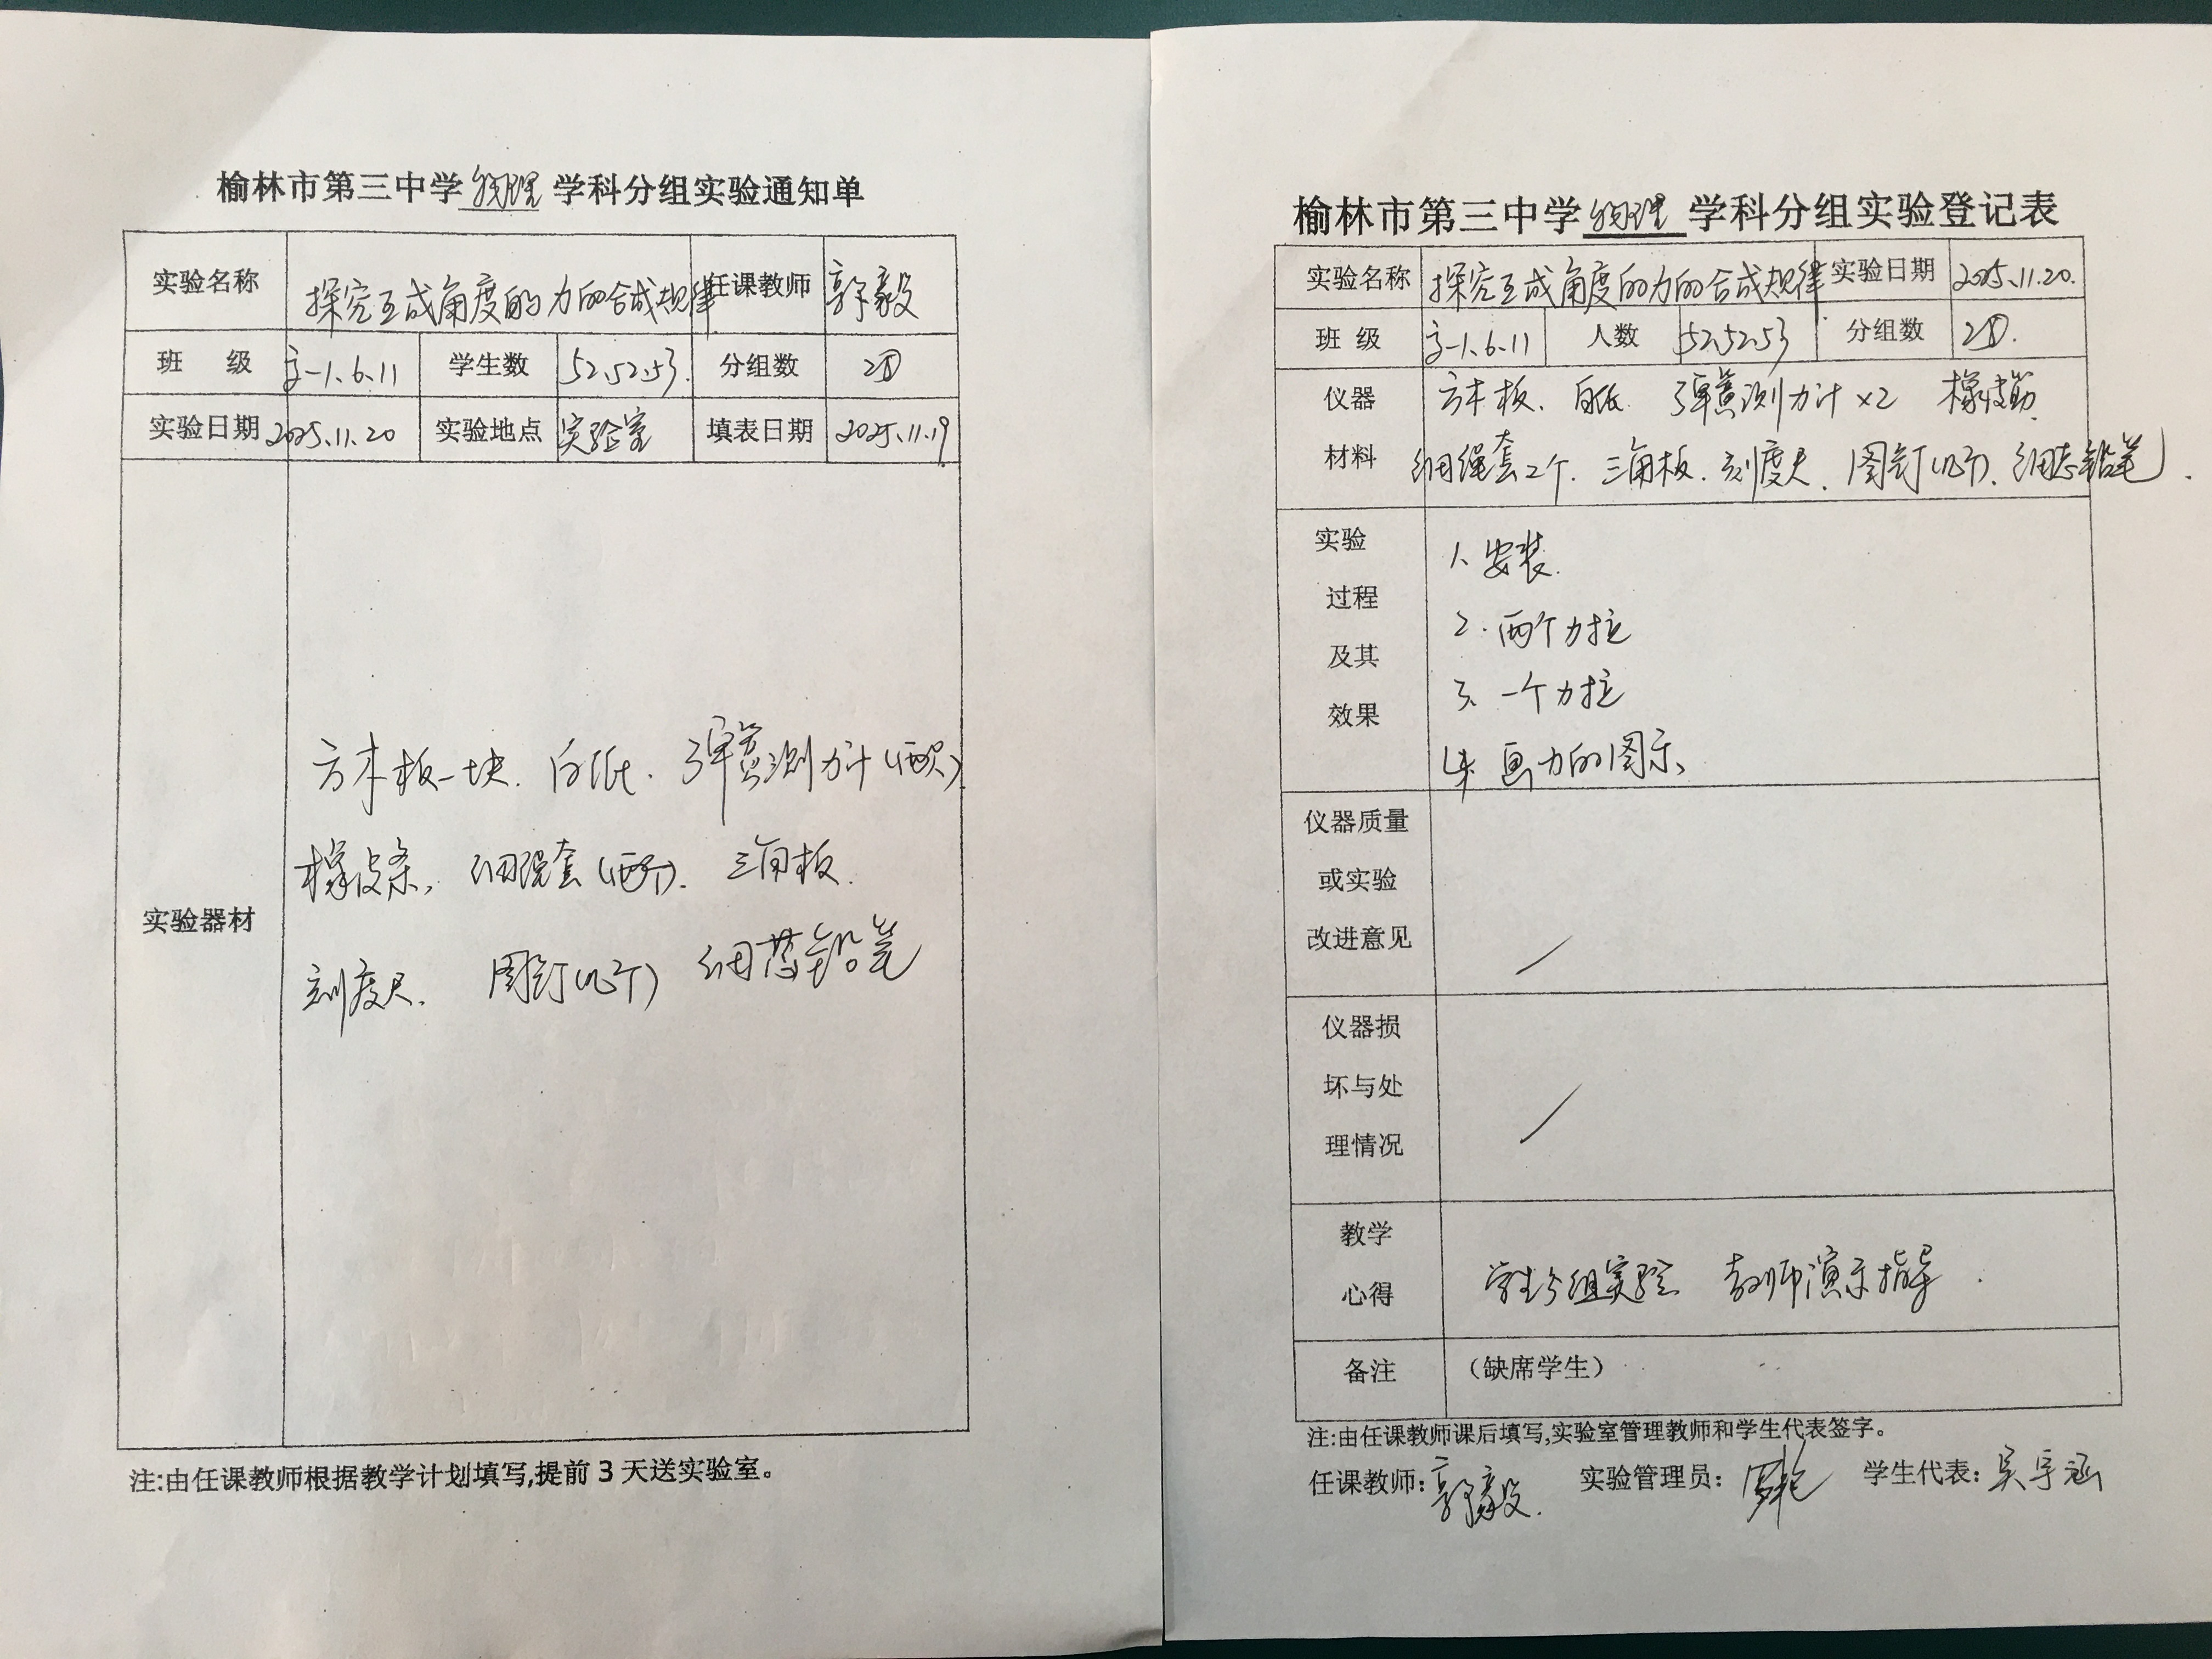 榆林市第三中学物理学科分组实验通知单
实验名称 探究互成角度的力的合成规律 任课教师 郭毅
班 级 高一1、6、11 学生数 52、52、53. 分组数
实验日期 2025.11.20 实验地点 实验室 填表日期 2025.11.19
实验器材
方木板一块. 白纸. 弹簧测力计(两只)
橡皮条, 细绳套(两个). 三角板.
刻度尺. 图钉(几个) 细芯铅笔
注:由任课教师根据教学计划填写,提前 3 天送实验室。
榆林市第三中学物理学科分组实验登记表
实验名称 探究互成角度的力的合成规律 实验日期 2025.11.20.
班 级 高一1、6、11 人数 52、52、53 分组数
仪器 方木板、白纸 弹簧测力计×2 橡皮筋
材料 细绳套2个. 三角板. 刻度尺. 图钉(几个). 细芯铅笔.
实验
过程
及其
效果
1、安装.
2. 两个力拉
3、一个力拉
4、画力的图示、
仪器质量
或实验
改进意见
仪器损
坏与处
理情况
教学
心得
学生分组实验 教师演示指导.
备注 (缺席学生)
注:由任课教师课后填写,实验室管理教师和学生代表签字。
任课教师: 郭毅. 实验管理员: 学生代表: 吴宇涵